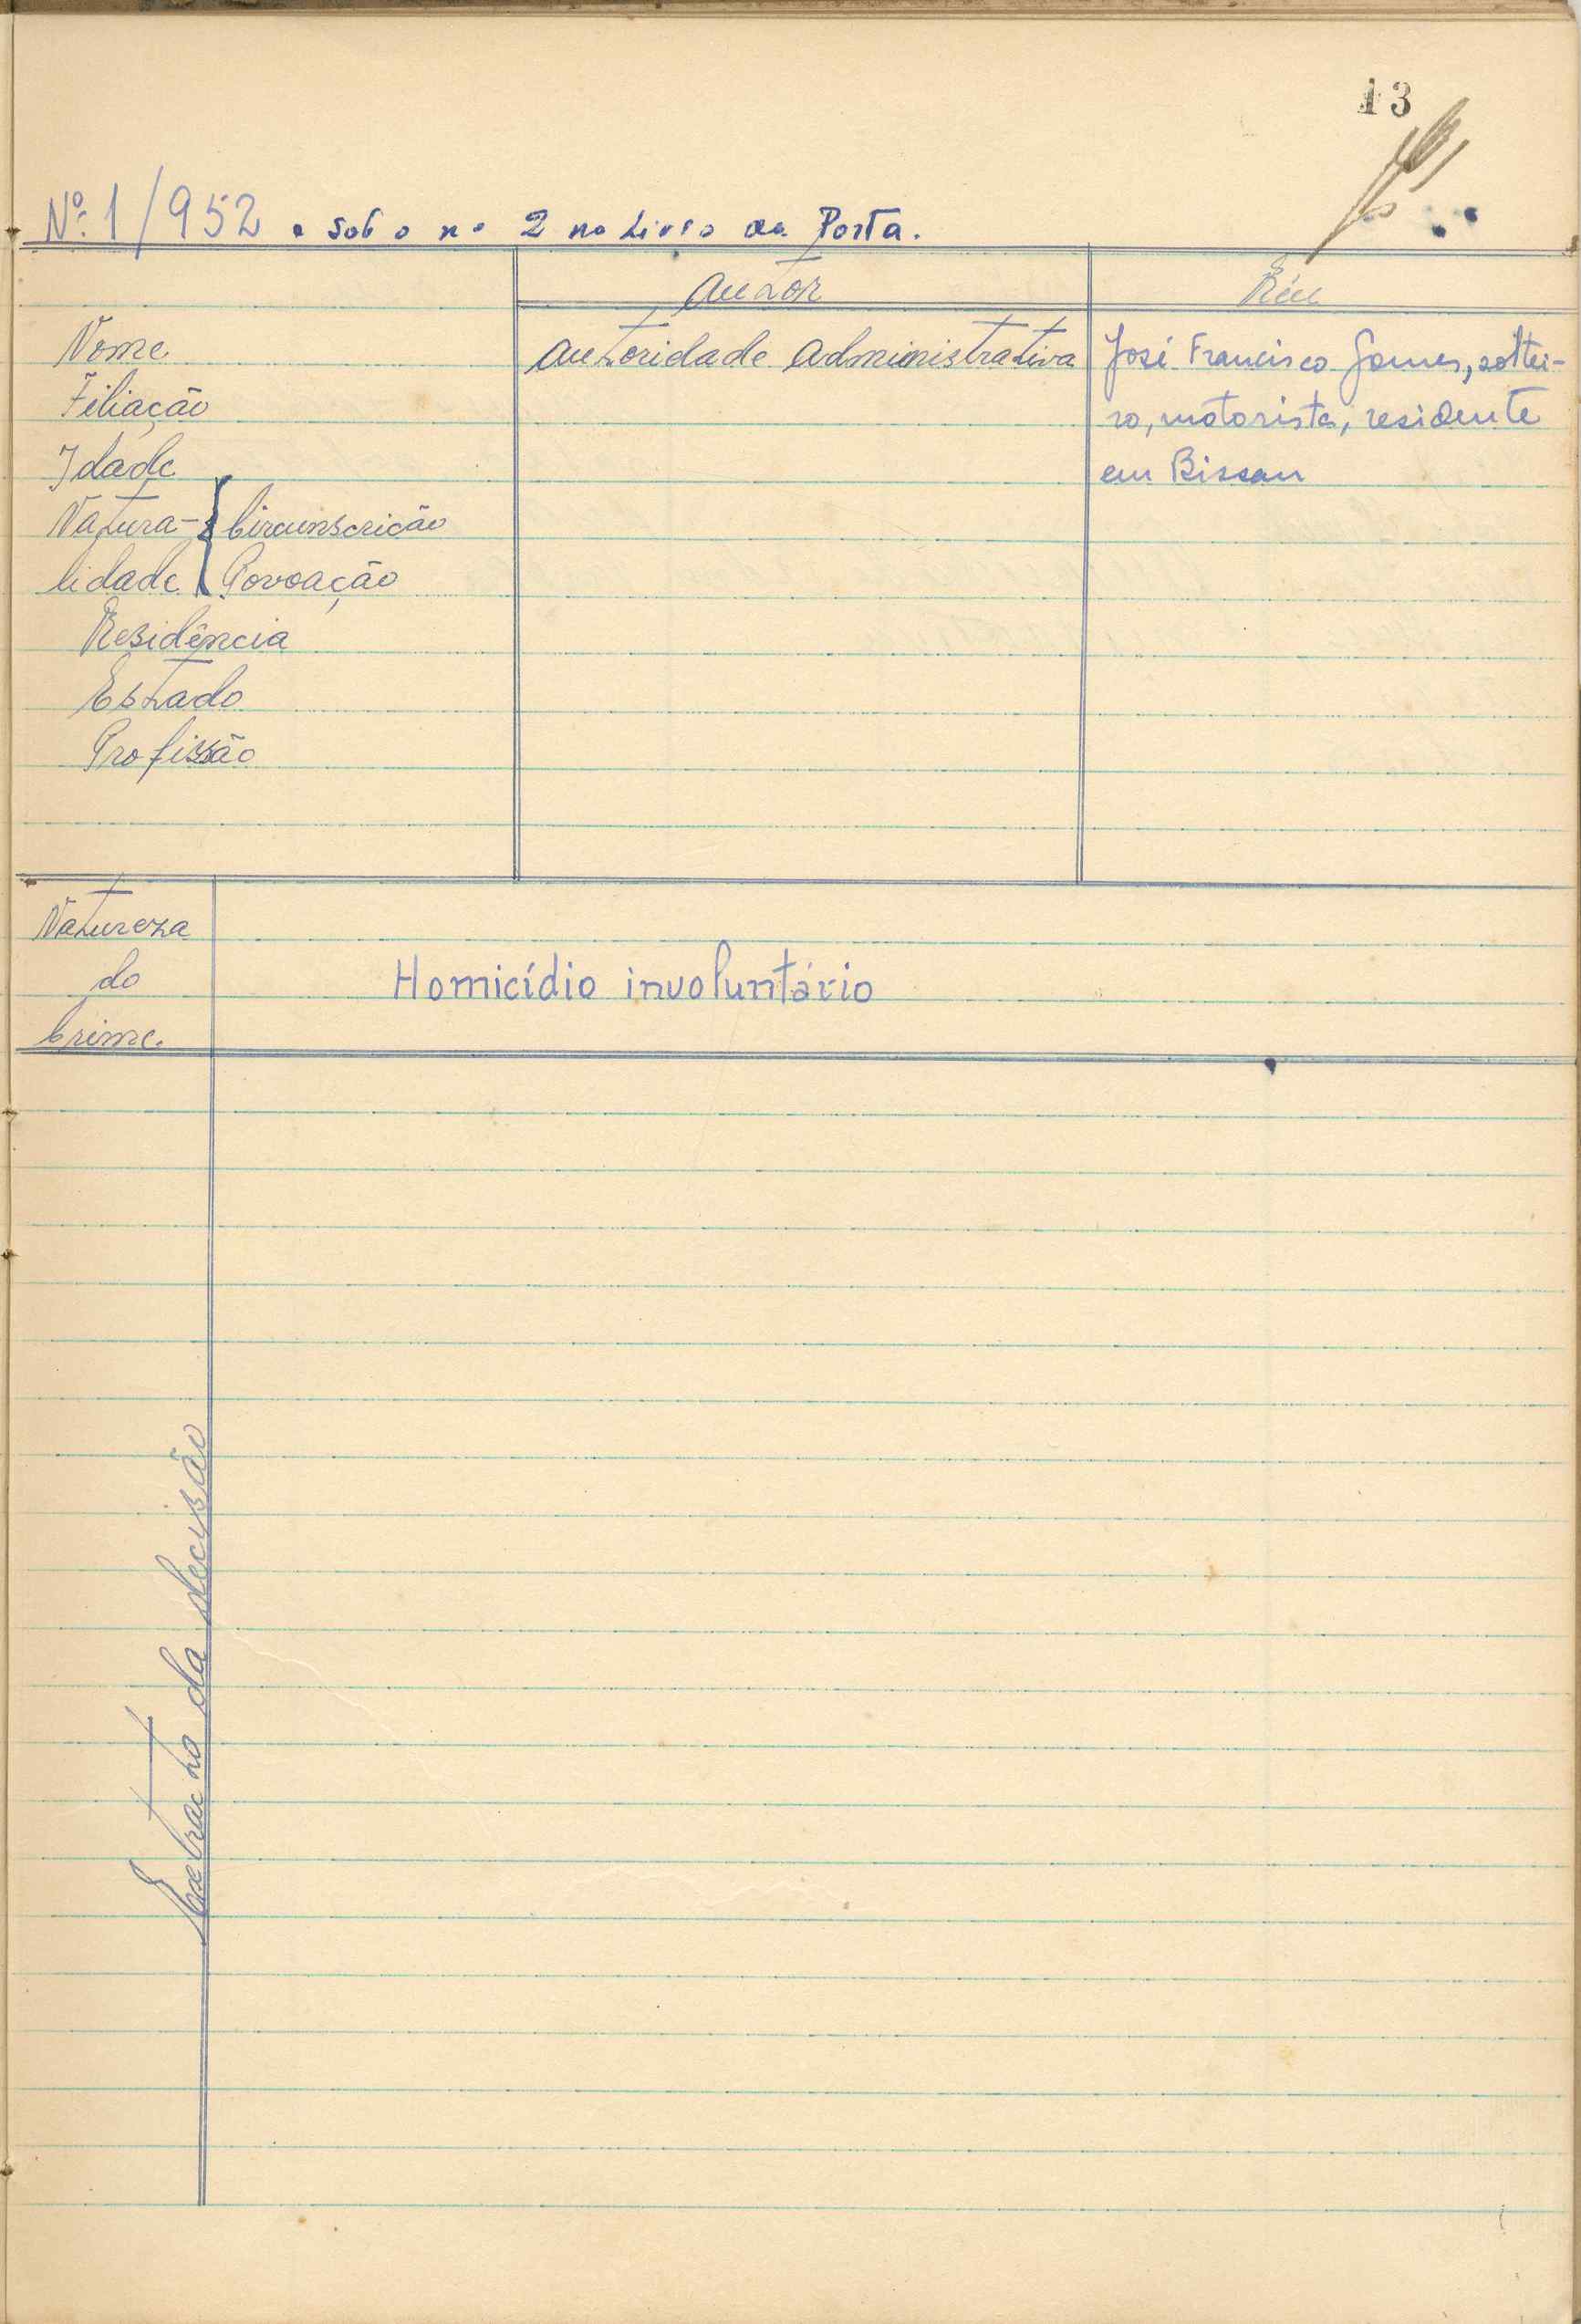 13
Nº 1/952 e sob o nº 2 no Livro da Porta.
Autor
Réu
Nome
Autoridade Administrativa
José Francisco Gomes, soltei-
Filiação
ro, motorista, residente
Idade
em Bissau
Natura- Circunscrição
lidade Povoação
Residência
Estado
Profissão
Natureza
do
Crime.
Homicídio involuntário
Extracto da decisão